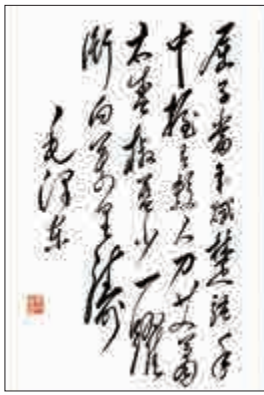 屈子当年赋楚骚手
中握有杀人刀艾萧
太盛椒兰少一跃
冲向万里涛
毛泽东